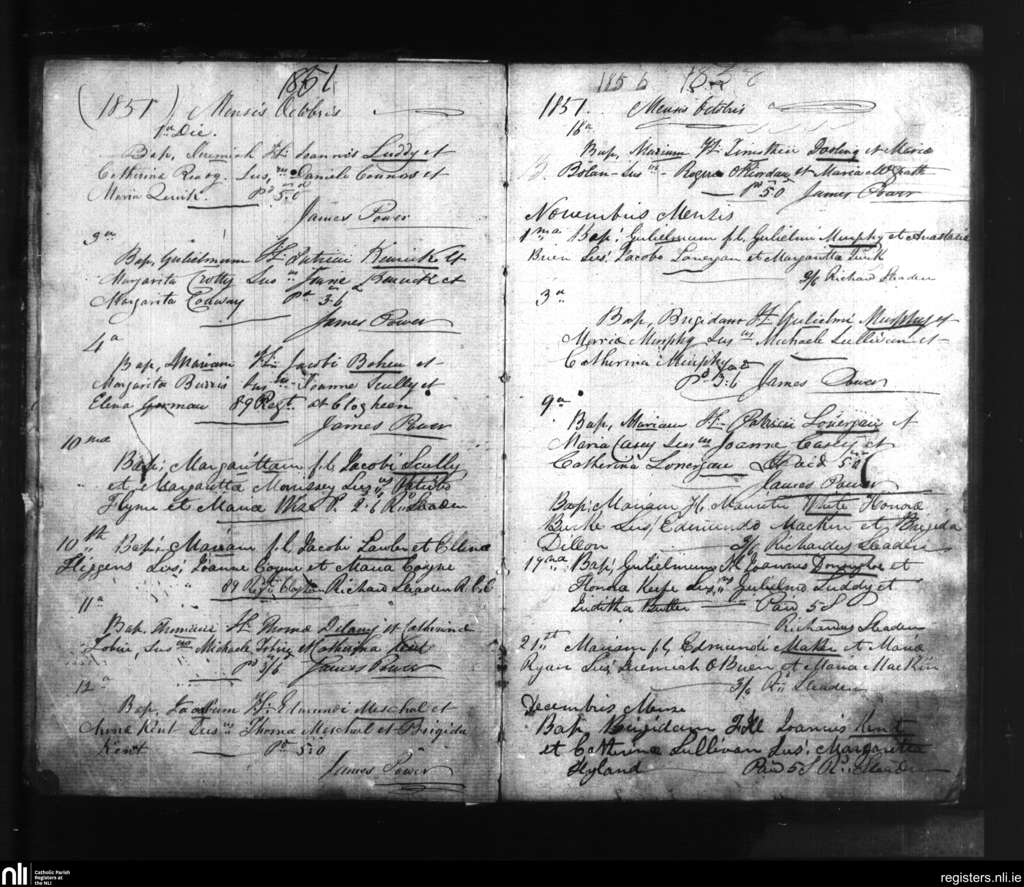 1851
(1851) Mensis Octobris
1a Die.
Bap, Jeremiah Joannis Luddy et
Catherina Sus, Daniele Connors et
Maria Quirk. Pd 5.0
James Power
3a
Bap, Gulielmum Patricii et
Margarita Crotty Sus et
Margarita Conway Pd 3-6
James Power
4a
Bap, Mariam Jacobi Bohen et
Margarita Burris Sus Joanne Scully et
Elena Gorman 89 Regt. at Clogheen
James Power
10 ma
Bap; Margarittam fl Jacobi Scully
et Margaritta Morrissey Sus
Flynn et Maria P. 2-6 Rd Sladen
10th Bap; Mariam fl Jacobi Lawler et Ellena
Higgens Sus; Joanne Coyne et Maria Coyne
89 Regt Richard Sladen R.C.C
11a
Bap, Thomæ Delany et Catherina
Tobin, Sus Michaele Tobin et Catherina Kent
Pd 3/6 James Power
12a
Bap, Jacobum Edmundi Marshal et
Anna Kent Sus Thoma Marshal et Brigida
Kent Pd 5.0
James Power
1856
1851. Mensis Octobris
18a
Bap, Mariam Timothei Dooling et Maria
Sus Rogero O Riordan et Maria McGrath
Pd 5.0 James Power
Novembris Mensis
1ma Bap; Gulielmum fl. Gulielmi Murphy et Anastasia
Sus; Jacobo Lonergan et Margaritta Quirk
Richard Sladen
3a
Bap, Brigidam Gulielmi Murphy et
Maria Murphy Sus Michaele Sullivan et
Catherina Murphy
Pd 3:6 James Power
9a
Bap, Mariam Patricii Lonergan et
Maria Casey Sus Joanne Casey et
Catherina Lonergan Paid 5:0
James Power
Bap; Mariam fl. Mauritii White Honora
Burke Sus; Edmundo Mackin et Brigida
Dillon 3/6 Richardus Sladen
19ma Bap; Gulielmum fl Joannis Donoghoe et
Honora Keefe Sus, Gulielmo Luddy et
Juditha Butler Paid 5S
Richardus Sladen
21st Mariam fl Edmundi Maher et Maria
Ryan Sus; Jeremiah O Brien et Maria Mackin
3/6 Rd Sladen
Decembris Mense
Bap; Brigidam Joannis Kent
et Catherina Sullivan Sus; Margaritta
Hyland Paid 5S Rd Sladen
nli
Catholic Parish
Registers at
the NLI
registers.nli.ie